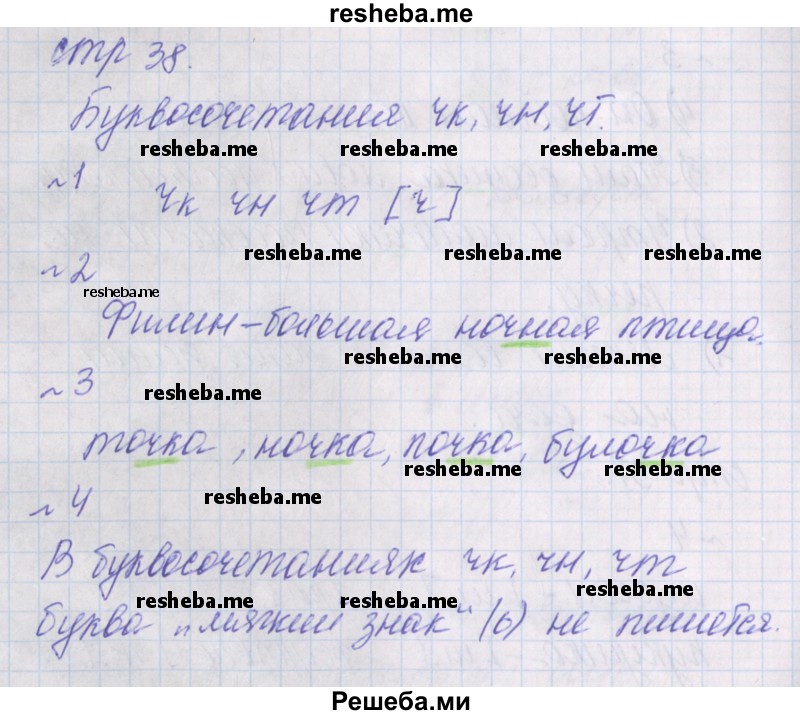 resheba.me
стр 38.
Буквосочетания чк, чн, чт.
resheba.me resheba.me resheba.me
~1
чк чн чт [ч]
resheba.me resheba.me resheba.me
~2
resheba.me
Филин – большая ночная птица.
resheba.me resheba.me
~3 resheba.me
точка, ночка, почка, булочка
resheba.me resheba.me
~4 resheba.me
В буквосочетаниях чк, чн, чт
resheba.me resheba.me resheba.me
буква „мягкий знак" (ь) не пишется.
Решеба.ми